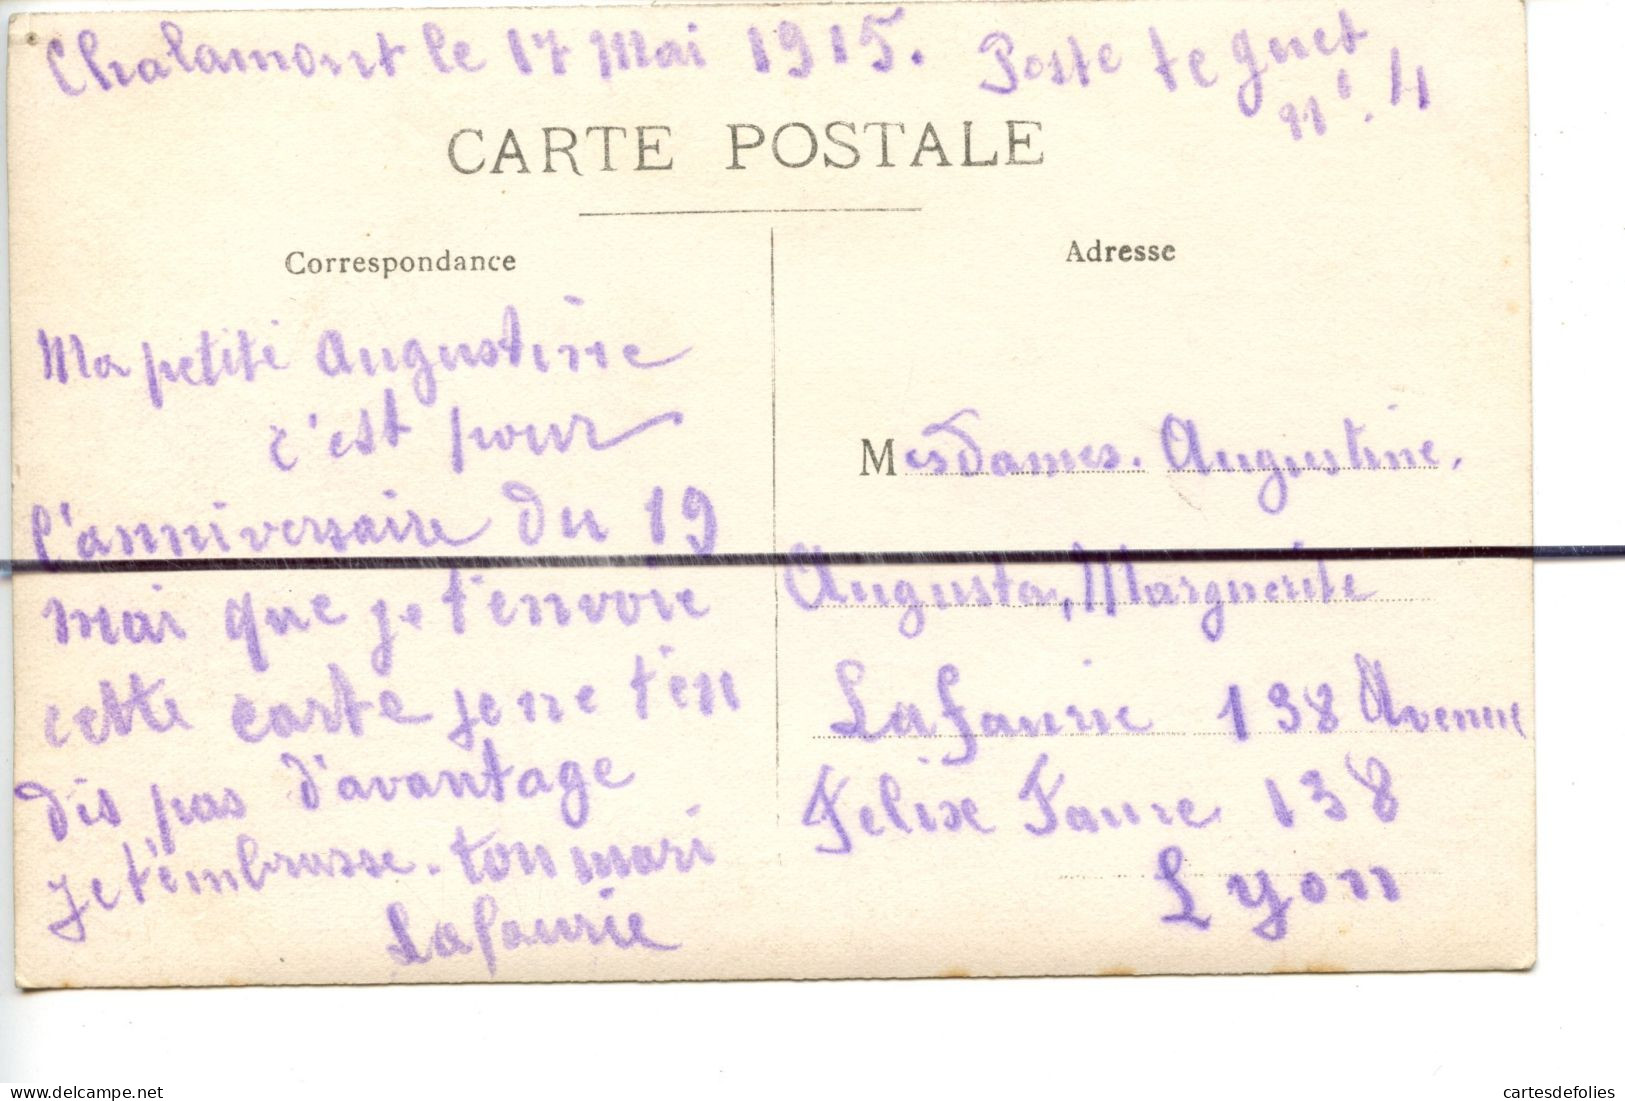 Chalamont le 17 Mai 1915. Poste te guet
n°. 4
CARTE POSTALE
Correspondance
Ma petite Augustine
c'est pour
l'anniversaire du 19
mai que je t'envoie
cette carte je ne t'en
dis pas d'avantage
je t'embrasse. ton mari
Lafaurie
Adresse
Mesdames. Augustine.
Augusta, Marguerite
Lafaurie 138 Avenue
Felix Faure 138
Lyon
delcampe.net
cartesdefolies